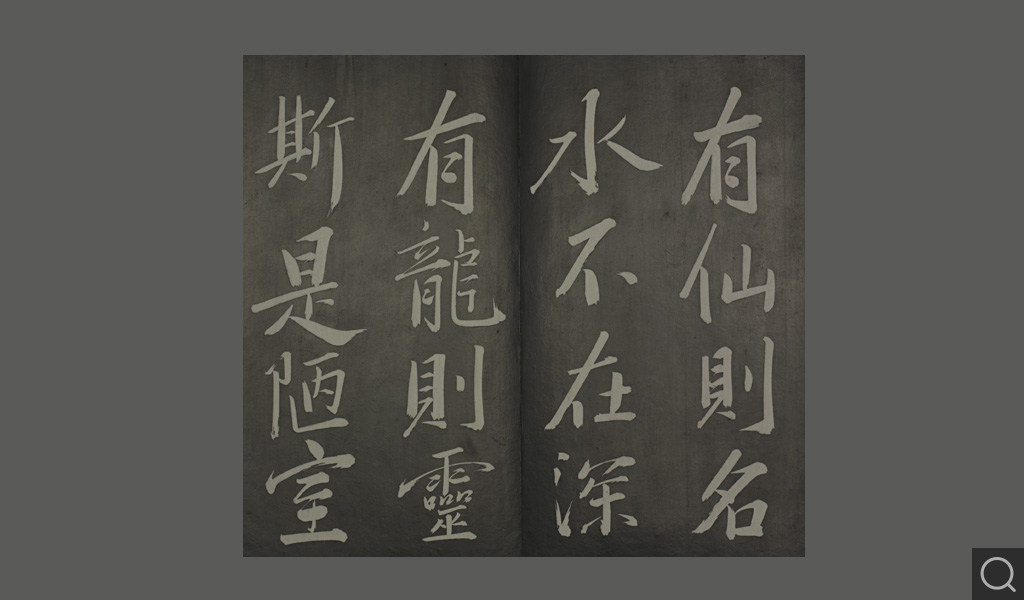 有仙則名
水不在深
有龍則靈
斯是陋室